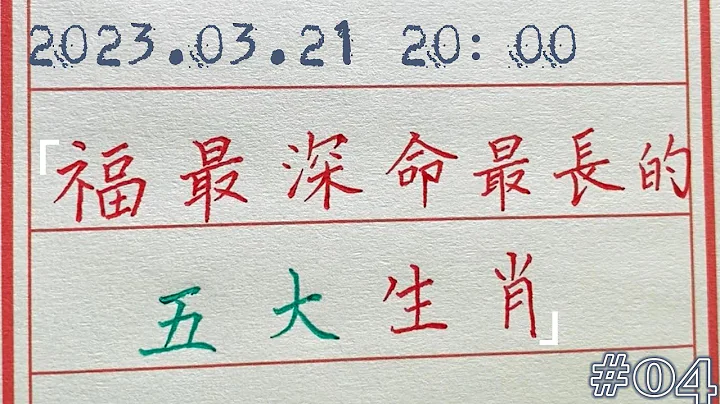 2023.03.21 20: 00
「福最深命最長的
五大生肖」
#04